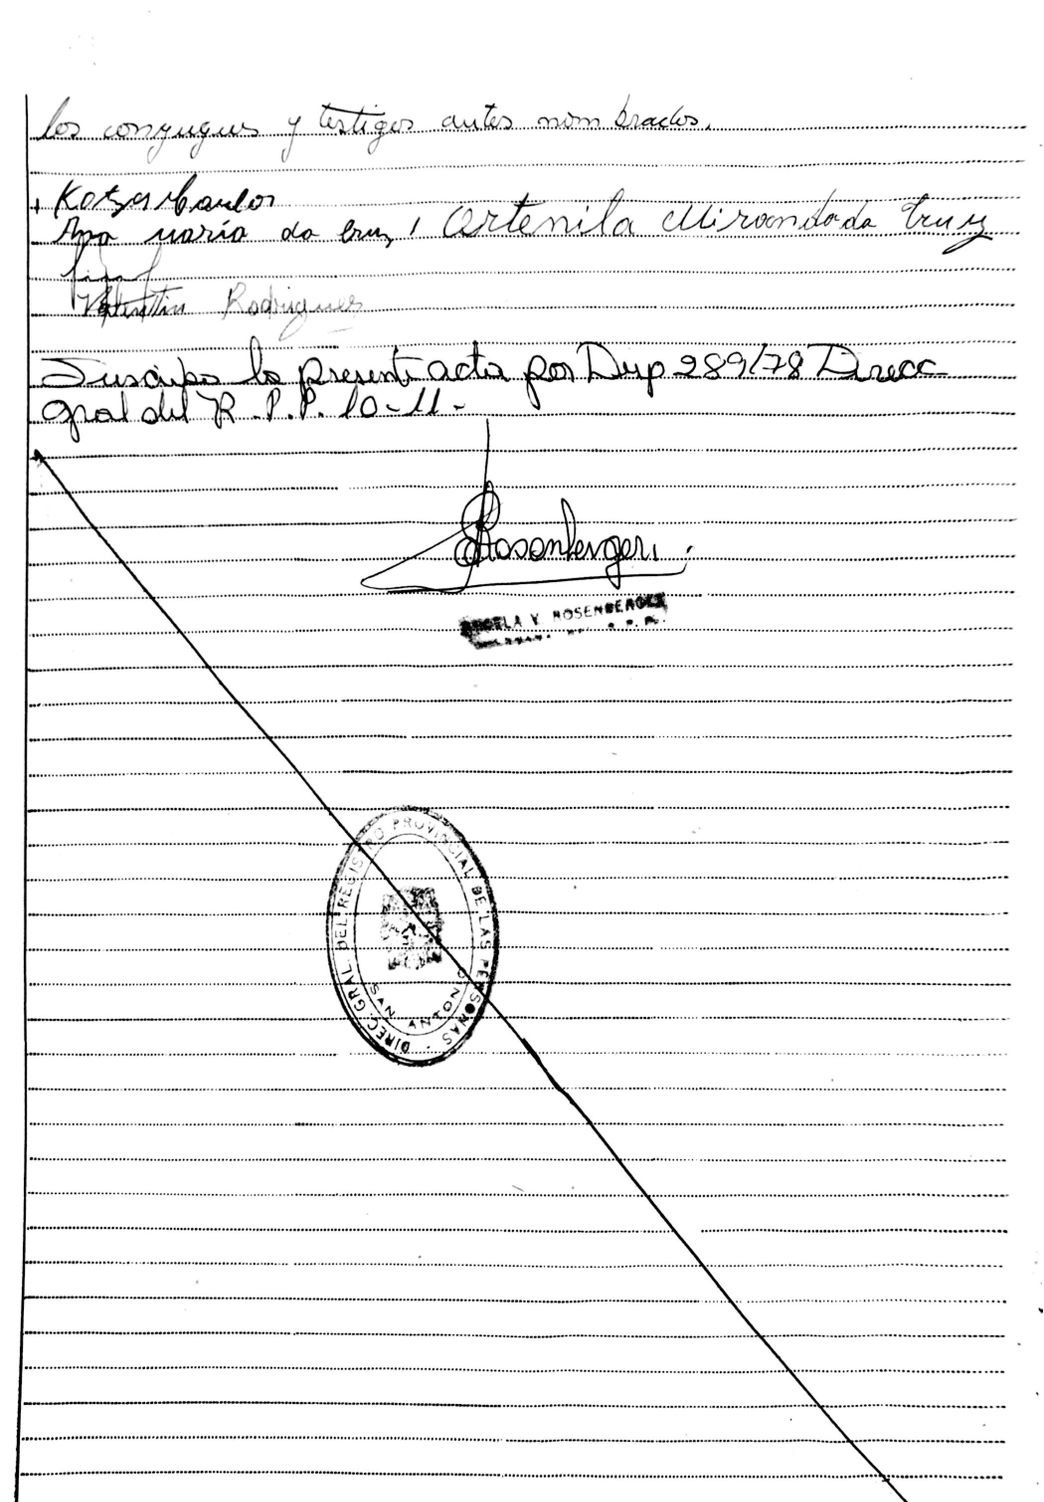 los conyugues y testigos antes nombrados.
Kotza Carlos
Ana maria da Cruz, Ortenila Miranda da Cruz
Valentin Rodrigues
Suscribo la presente acta por Disp 289/78 Direcc
Gral del R.P.P. 10-11-
Rosenberger
Y. ROSENBERGER
DIREC. GRAL. DEL REGISTRO PROVINCIAL DE LAS PERSONAS
SAN ANTONIO